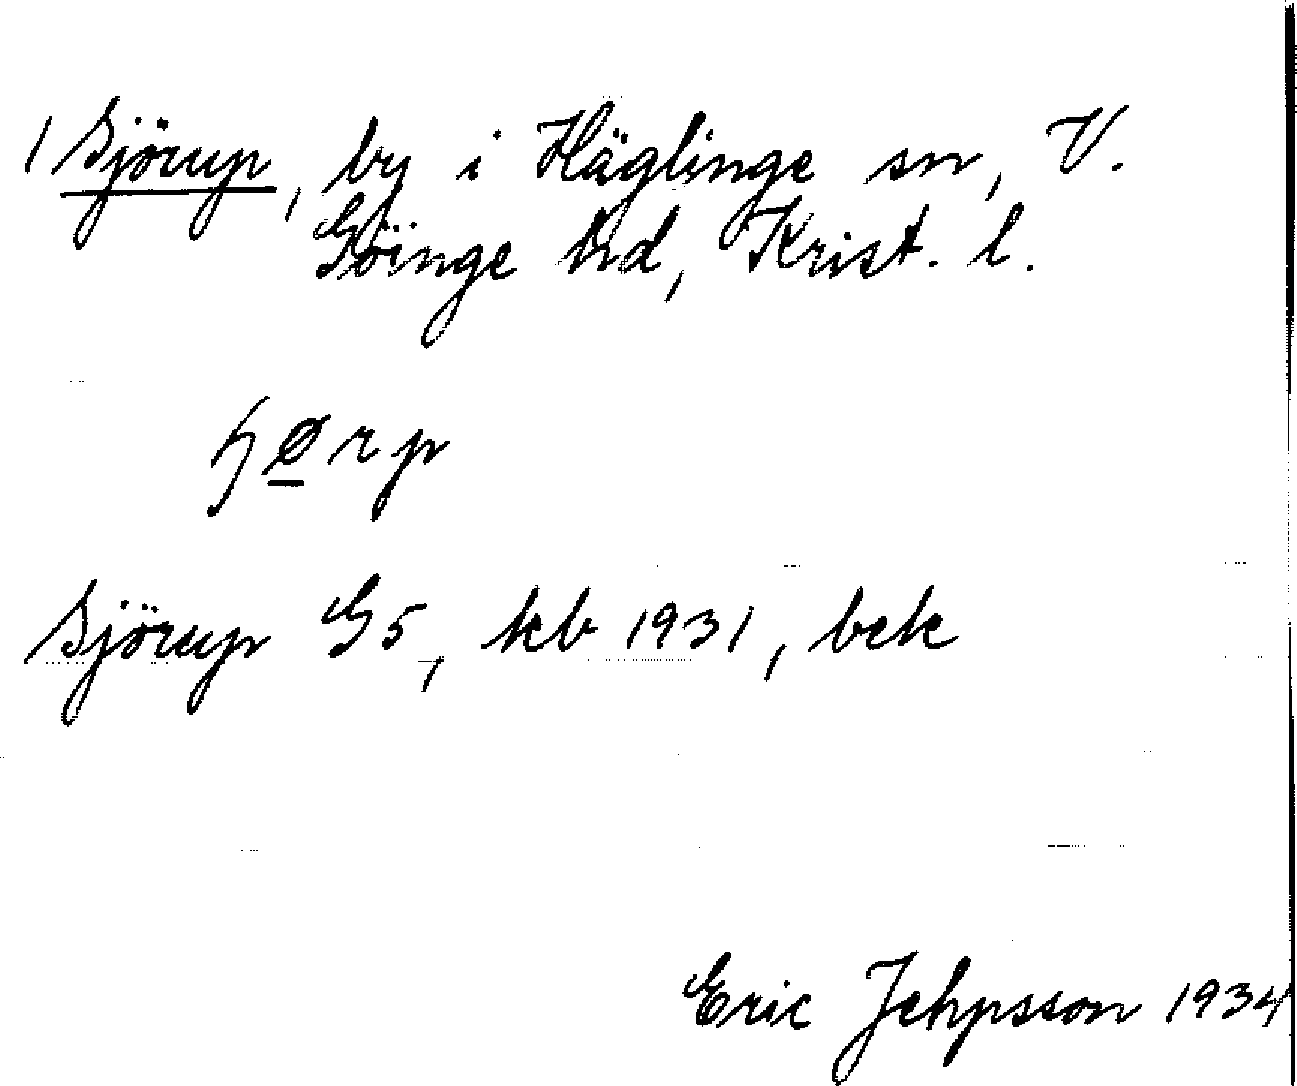 1 Sjörup, by i Häglinge sn, V.
Göinge hd, Krist. l.
ɧø̲rp
Sjörup G5, kb 1931, bek
Eric Jehpsson 1934